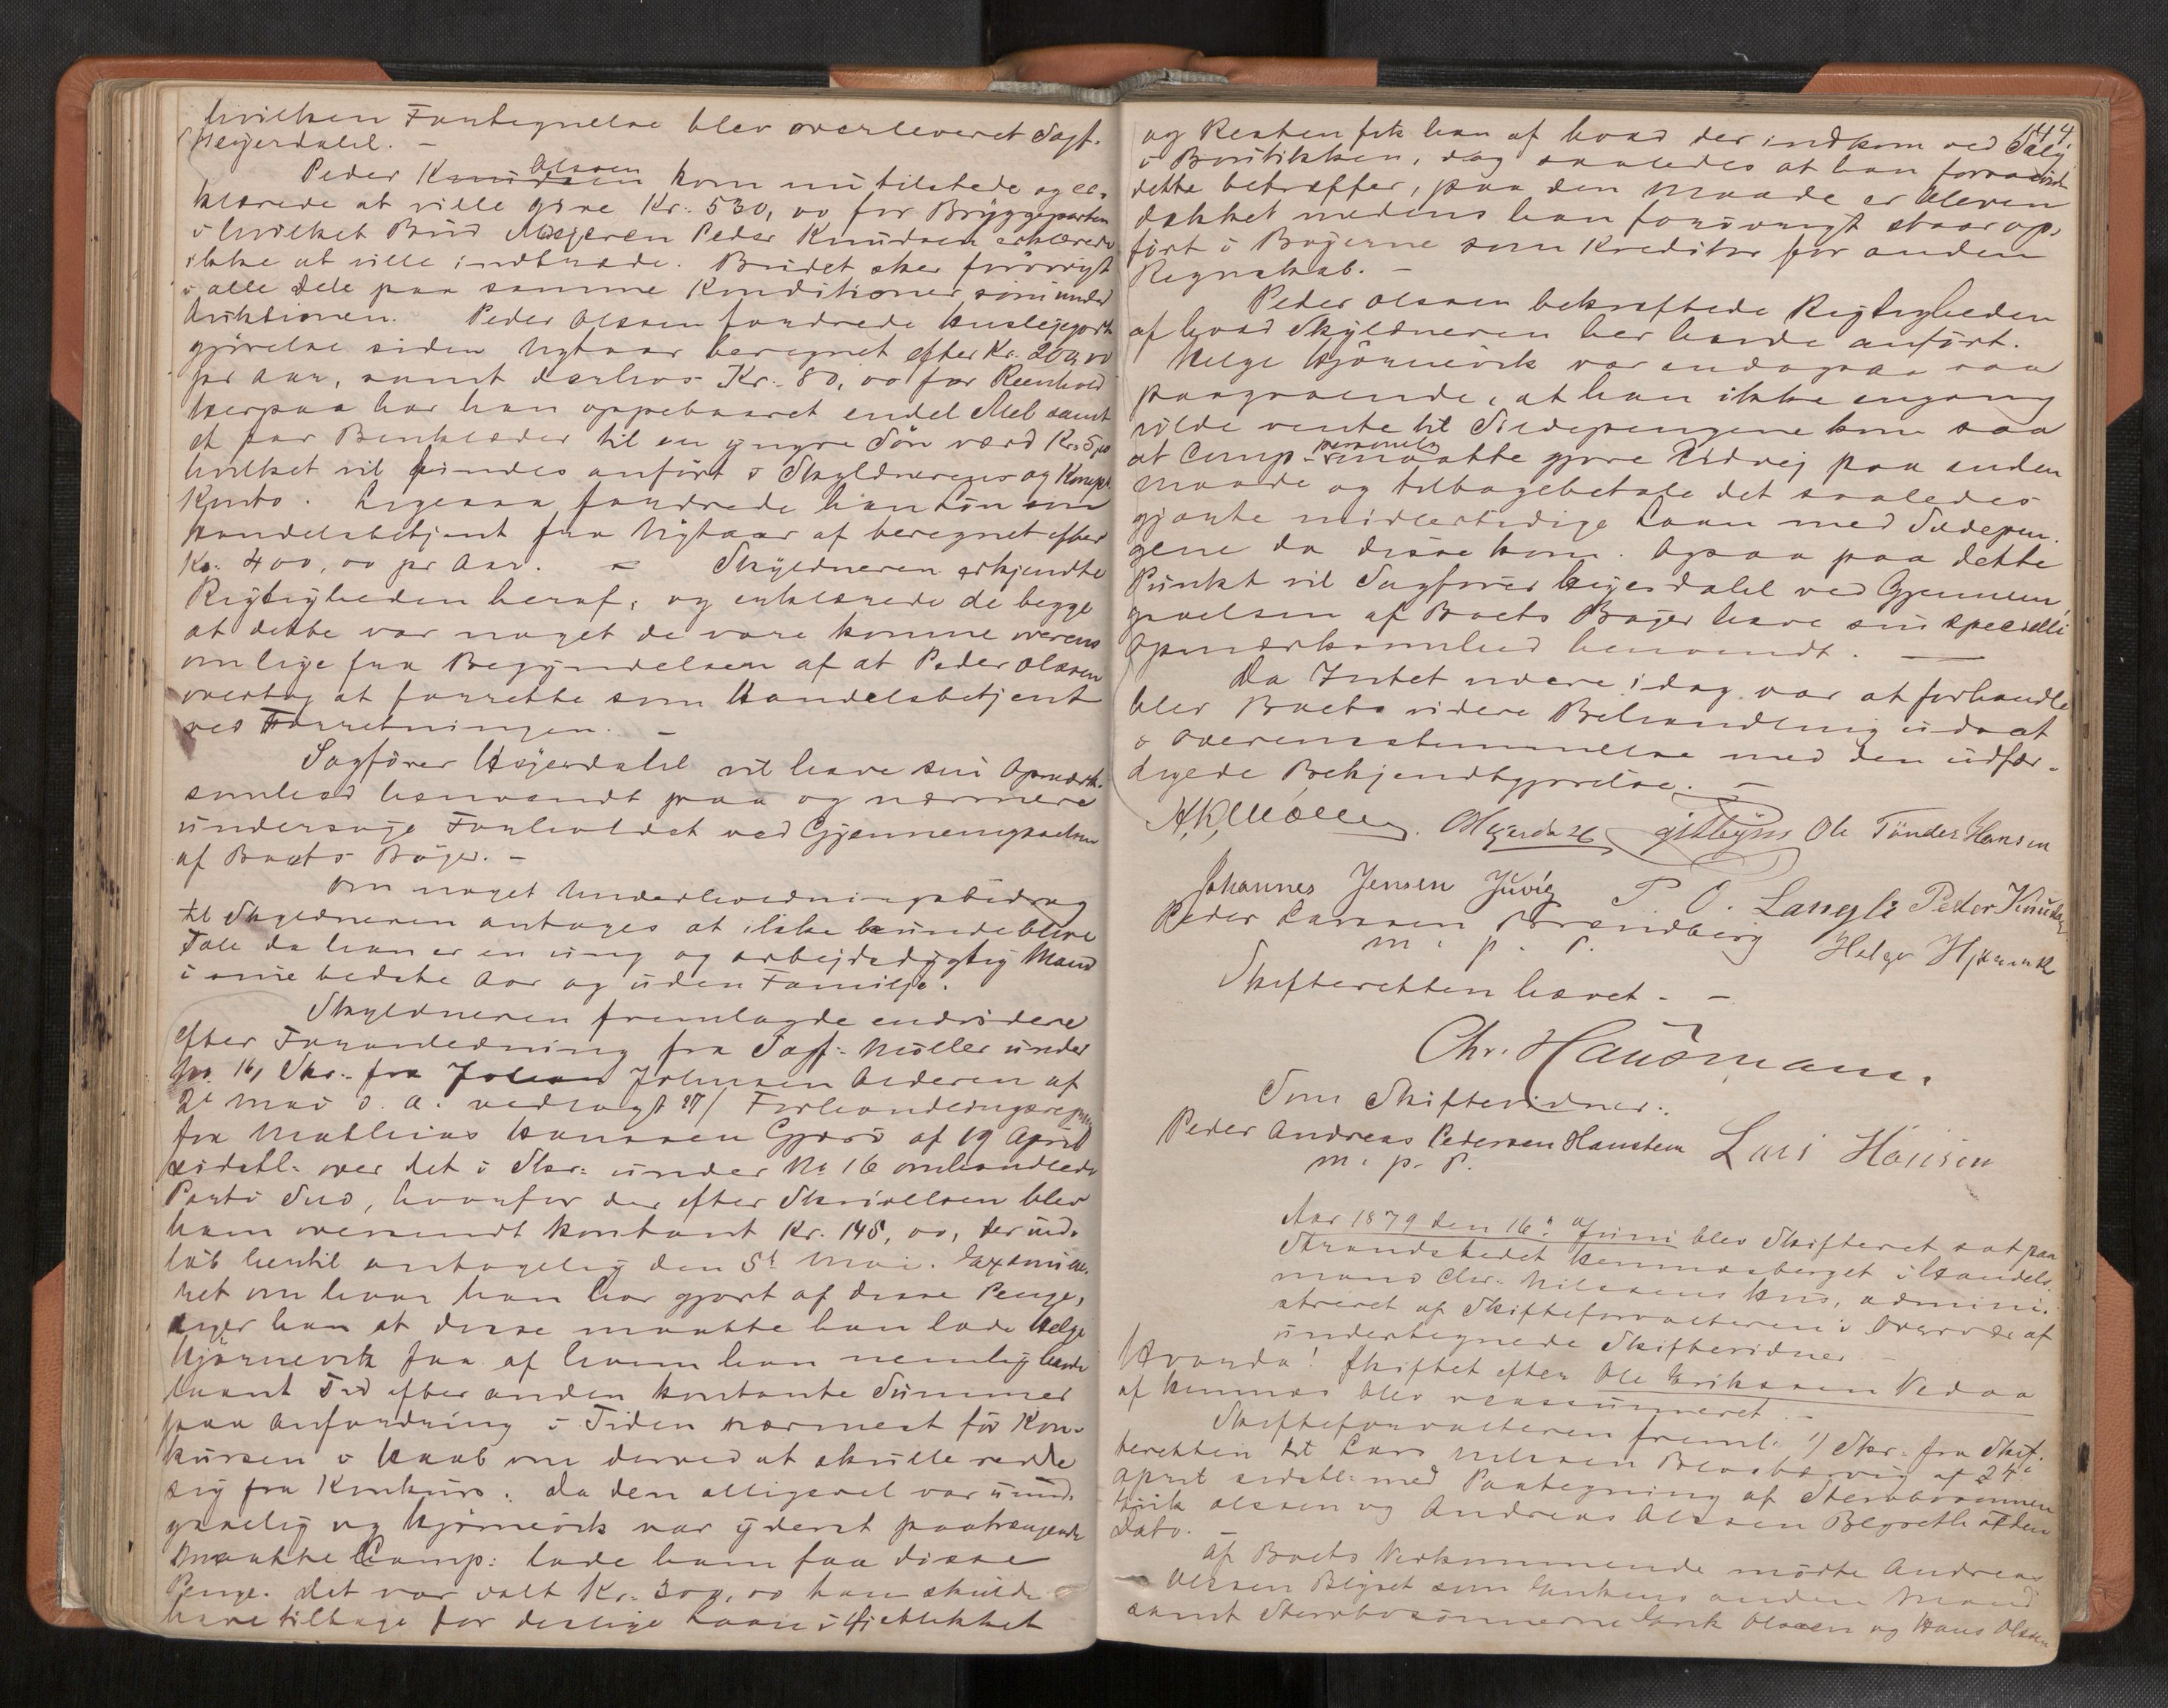 hvilken Fortegnelse blev overleveret Sagf.
Høyerdahl. -
Peder Knudsen Olssen kom nu tilstede og er-
klærede at ville give Kr. 530,00 for Bryggeparten
i hvilket Bud Mægleren Peder Knudsen erklærede
ikke at ville indtræde. Budet sker forøvrigt
i alle dele paa samme Konditioner som under
Auktionen. Peder Olssen fordrede Huslejegodt-
gjørelse siden Nytaar beregnet efter Kr. 200,00
pr Aar, samt derhos Kr. 80,00 for Reenhold
herpaa har han oppebaaret endel Mel samt
et par Benklæder til en yngre Søn værd Kr. 5,00
hvilket vil findes anført i Skyldnerens og Komp.
Konto. Ligesaa fordrede han Løn som
Handelsbetjent fra Nytaar af beregnet efter
Kr. 400,00 pr Aar. - Skyldneren erkjendte
Rigtigheden heraf, og erklærede de begge
at dette var noget de vare komne overens
om lige fra Begyndelsen af at Peder Olssen
overtog at forrette som Handelsbetjent
ved Forretningen. -
Sagfører Høyerdahl vil have sin Opmærk-
somhed henvendt paa og nærmere
undersøge Forholdet ved Gjennemgaaelsen
af Boets Bøger. -
Om noget Underholdningsbidrag
til Skyldneren antages at ikke kunde blive
Tale da han er en ung og arbejdsdygtig Mand
i sine bedste Aar og uden Familje.
Skyldneren fremlagde endvidere
efter Foranledning fra Sagf. Møller under
No. 16, Skr. fra Johan Johnsen Alderen af
2d Mai d. A. vedlagt 17/ Forhandlingsregning
fra Mathias Hanssen Gjærø af 19 April
sidstl. over det i Skr. under No 16 omhandlede
Parti Sild, hvorfor der efter Skrivelsen blev
ham oversendt kontant Kr. 145,00, der ind-
løb hertil antagelig den 5t Mai. Examine-
ret om hvor han har gjort af disse Penge,
siger han at disse maatte han lade Helge
Hjørnevik faa af hvem han nemlig havde
laant Tid efter anden kontante Summer
paa Anfordring i Tiden nærmest før Kon-
kursen i Haab om derved at skulle redde
sig fra Konkurs. Da den alligevel var uund-
gaaelig og Hjørnevik var yderst paatrængende
maatte Comp: lade ham faa disse
Penge. Det var ialt Kr. 300,00 han skulde
have tilbage for deslige Laan i Øieblikket
144
og Resten fik han af hvad der indkom ved Salg
i Boutikken, dog saaledes at han forsaavidt
dette betræffer, paa den Maade er bleven
dækket medens han forøvrigt staar op-
ført i Bøgerne som Kreditor for anden
Regnskab. -
Peder Olssen bekræftede Rigtigheden
af hvad Skyldneren her havde anført.
Helge Hjørnevik var endogsaa saa
paagaaende, at han ikke engang
vilde vente til Sildepengene kom saa
at Comp. personlig maatte gjøre Udvej paa anden
Maade og tilbagebetale det saaledes
gjorte midlertidige Laan med Sildepen-
gene da disse kom. Ogsaa paa dette
Punkt vil Sagfører Høyerdahl ved Gjennem-
gaaelsen af Boets Bøger have sin specielle
Opmærksomhed henvendt. -
Da Intet videre idag var at forhandle
blev Boets videre Behandling udsat
i Overensstemmelse med den udfær-
digede Bekjendtgjørelse. -
Ole Tønder Hansen
Johannes Jensen Juvig P. O. Langli Peder Knudsen
Peder Larssen Strandberg Helge Hjørnevik
m. p. P.
Skifteretten hævet. -
Chr. Hausmann.
Som Skiftevidner:
Peder Andreas Pedersen Haustein Lars Hansen
m. p. P.
Aar 1879 den 16. Juni blev Skifteret sat paa
Strandstedet Kommesberget i Handels-
mand Chr. Nilssens Hus, admini-
streret af Skifteforvalteren i Overvær af
undertegnede Skiftevidner -
Hvorda! Skiftet efter Ole Erikssen Vedaa
af blev reassumeret. -
Skifteforvalteren freml. 1) Skr. fra Skif-
teretten til Lars Nilssen af 24de
April sidstl. med Paategning af Stervbosønnen
Erik Olssen og Andreas Olssen af den
Dato. -
Af Boets Vedkommende mødte Andreas
Olssen som Enkens anden Mand
samt Stervbosønnerne Erik Olssen og Hans Olssen